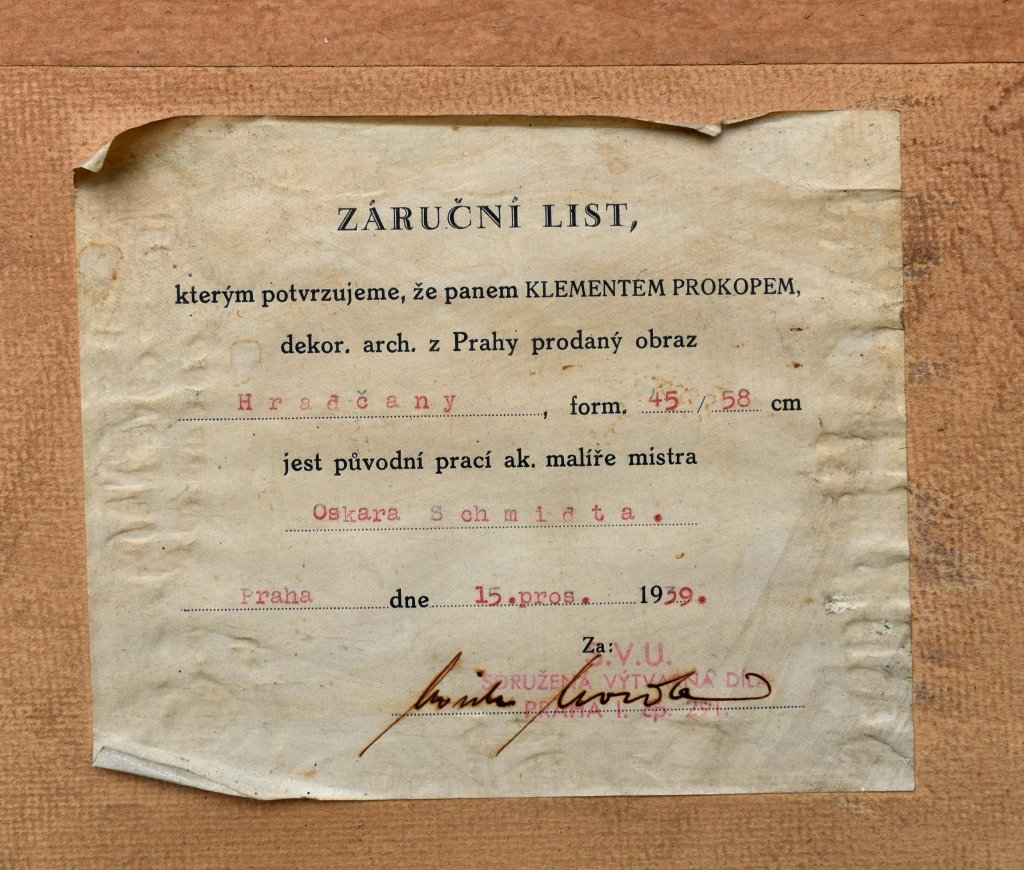 ZÁRUČNÍ LIST,
kterým potvrzujeme, že panem KLEMENTEM PROKOPEM,
dekor. arch. z Prahy prodaný obraz
Hradčany, form. 45 / 58 cm
jest původní prací ak. malíře mistra
Oskara Schmidta.
Praha dne 15.pros. 1939.
Za:
S.V.U.
SDRUŽENÁ VÝTVARNÁ DÍLA
PRAHA I. čp. 291.